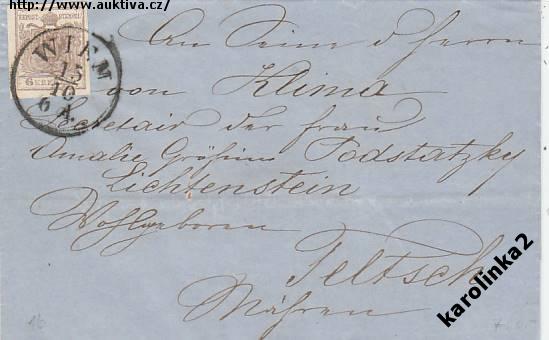 http://www.auktiva.cz/
6 KRE
WIEN
15
10
6 A.
An Seine d Herrn
von Klima
Secretair der frau
Amalie Gräfin Podstatzky
Lichtenstein
Wohlgeboren
Teltsch
Mähren
karolinka2